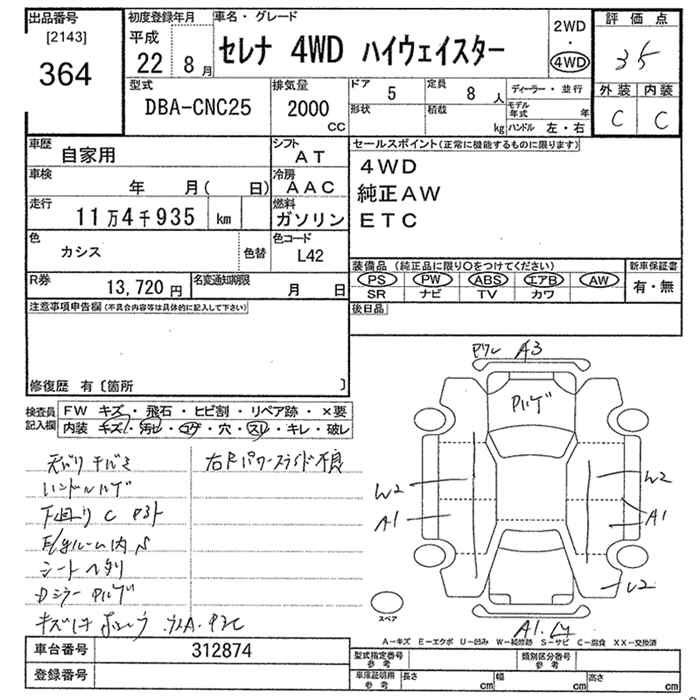 出品番号
[2143]
364
初度登録年月
平成
22 8月
車名・グレード
セレナ 4WD ハイウェイスター
2WD
・
4WD
評価点
35
外装 内装
C C
型式
DBA-CNC25
排気量
2000
CC
ドア 5
定員 8 人
形状
積載 kg
ディーラー・並行
モデル年式 年
ハンドル 左・右
車歴
自家用
シフト
AT
車検
年 月( 日)
冷房
AAC
走行
11万4千935 km
燃料
ガソリン
色
カシス
色替
色コード
L42
R券
13,720 円
名変通知期限
月 日
セールスポイント(正常に機能するものに限ります)
4WD
純正AW
ETC
装備品(純正品に限り〇をつけてください)
PS PW ABS エアB AW
SR ナビ TV カワ
新車保証書
有・無
後日品
注意事項申告欄(不具合内容等は具体的に記入して下さい)
修復歴 有〔箇所 〕
検査員記入欄
FW キズ・飛石・ヒビ割・リペア跡・×要
内装 キズ・汚ビ・コゲ・穴・スレ・キレ・破レ
ハンドルハゲ
下回り C
シート
Dミラー
A3
W2
A1
W2
A1
U2
A1
スペア
A-キズ E-エクボ U-凹み W-補修跡 S-サビ C-腐食 XX-交換済
車台番号
312874
登録番号
型式指定番号
参考
類別区分番号
参考
車庫証明用
参考
長さ cm
幅 cm
高さ cm